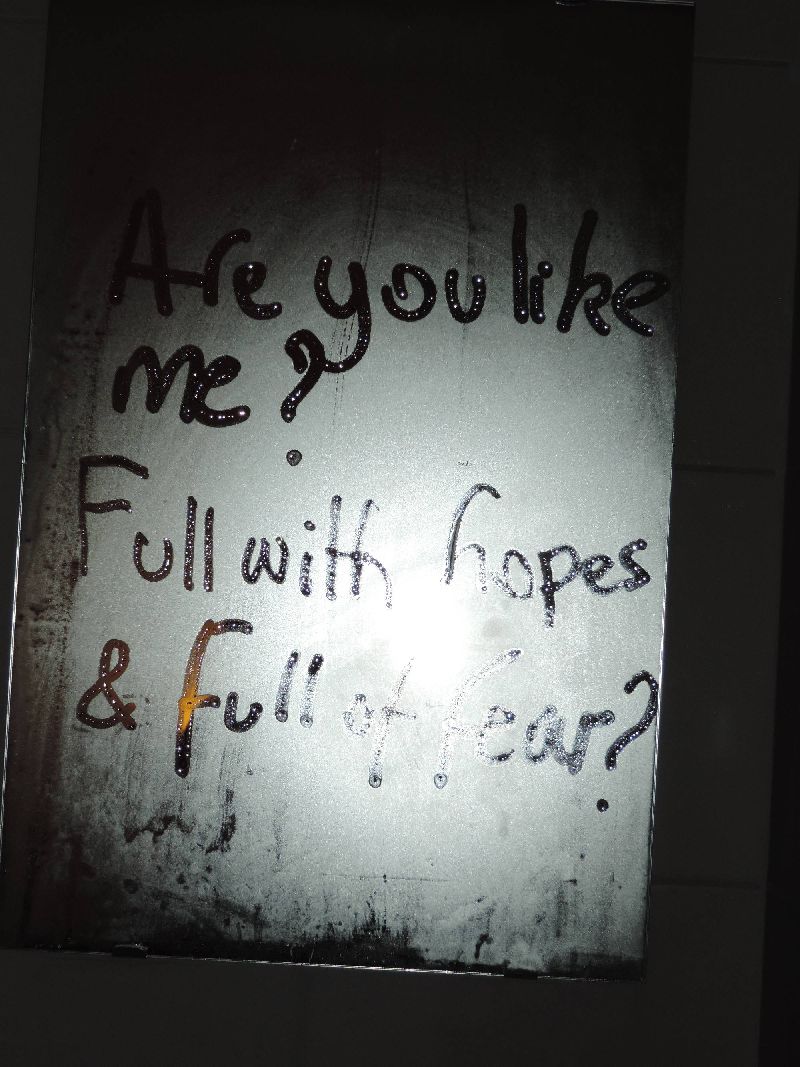 Are you like
me?
Full with hopes
& full of fear?